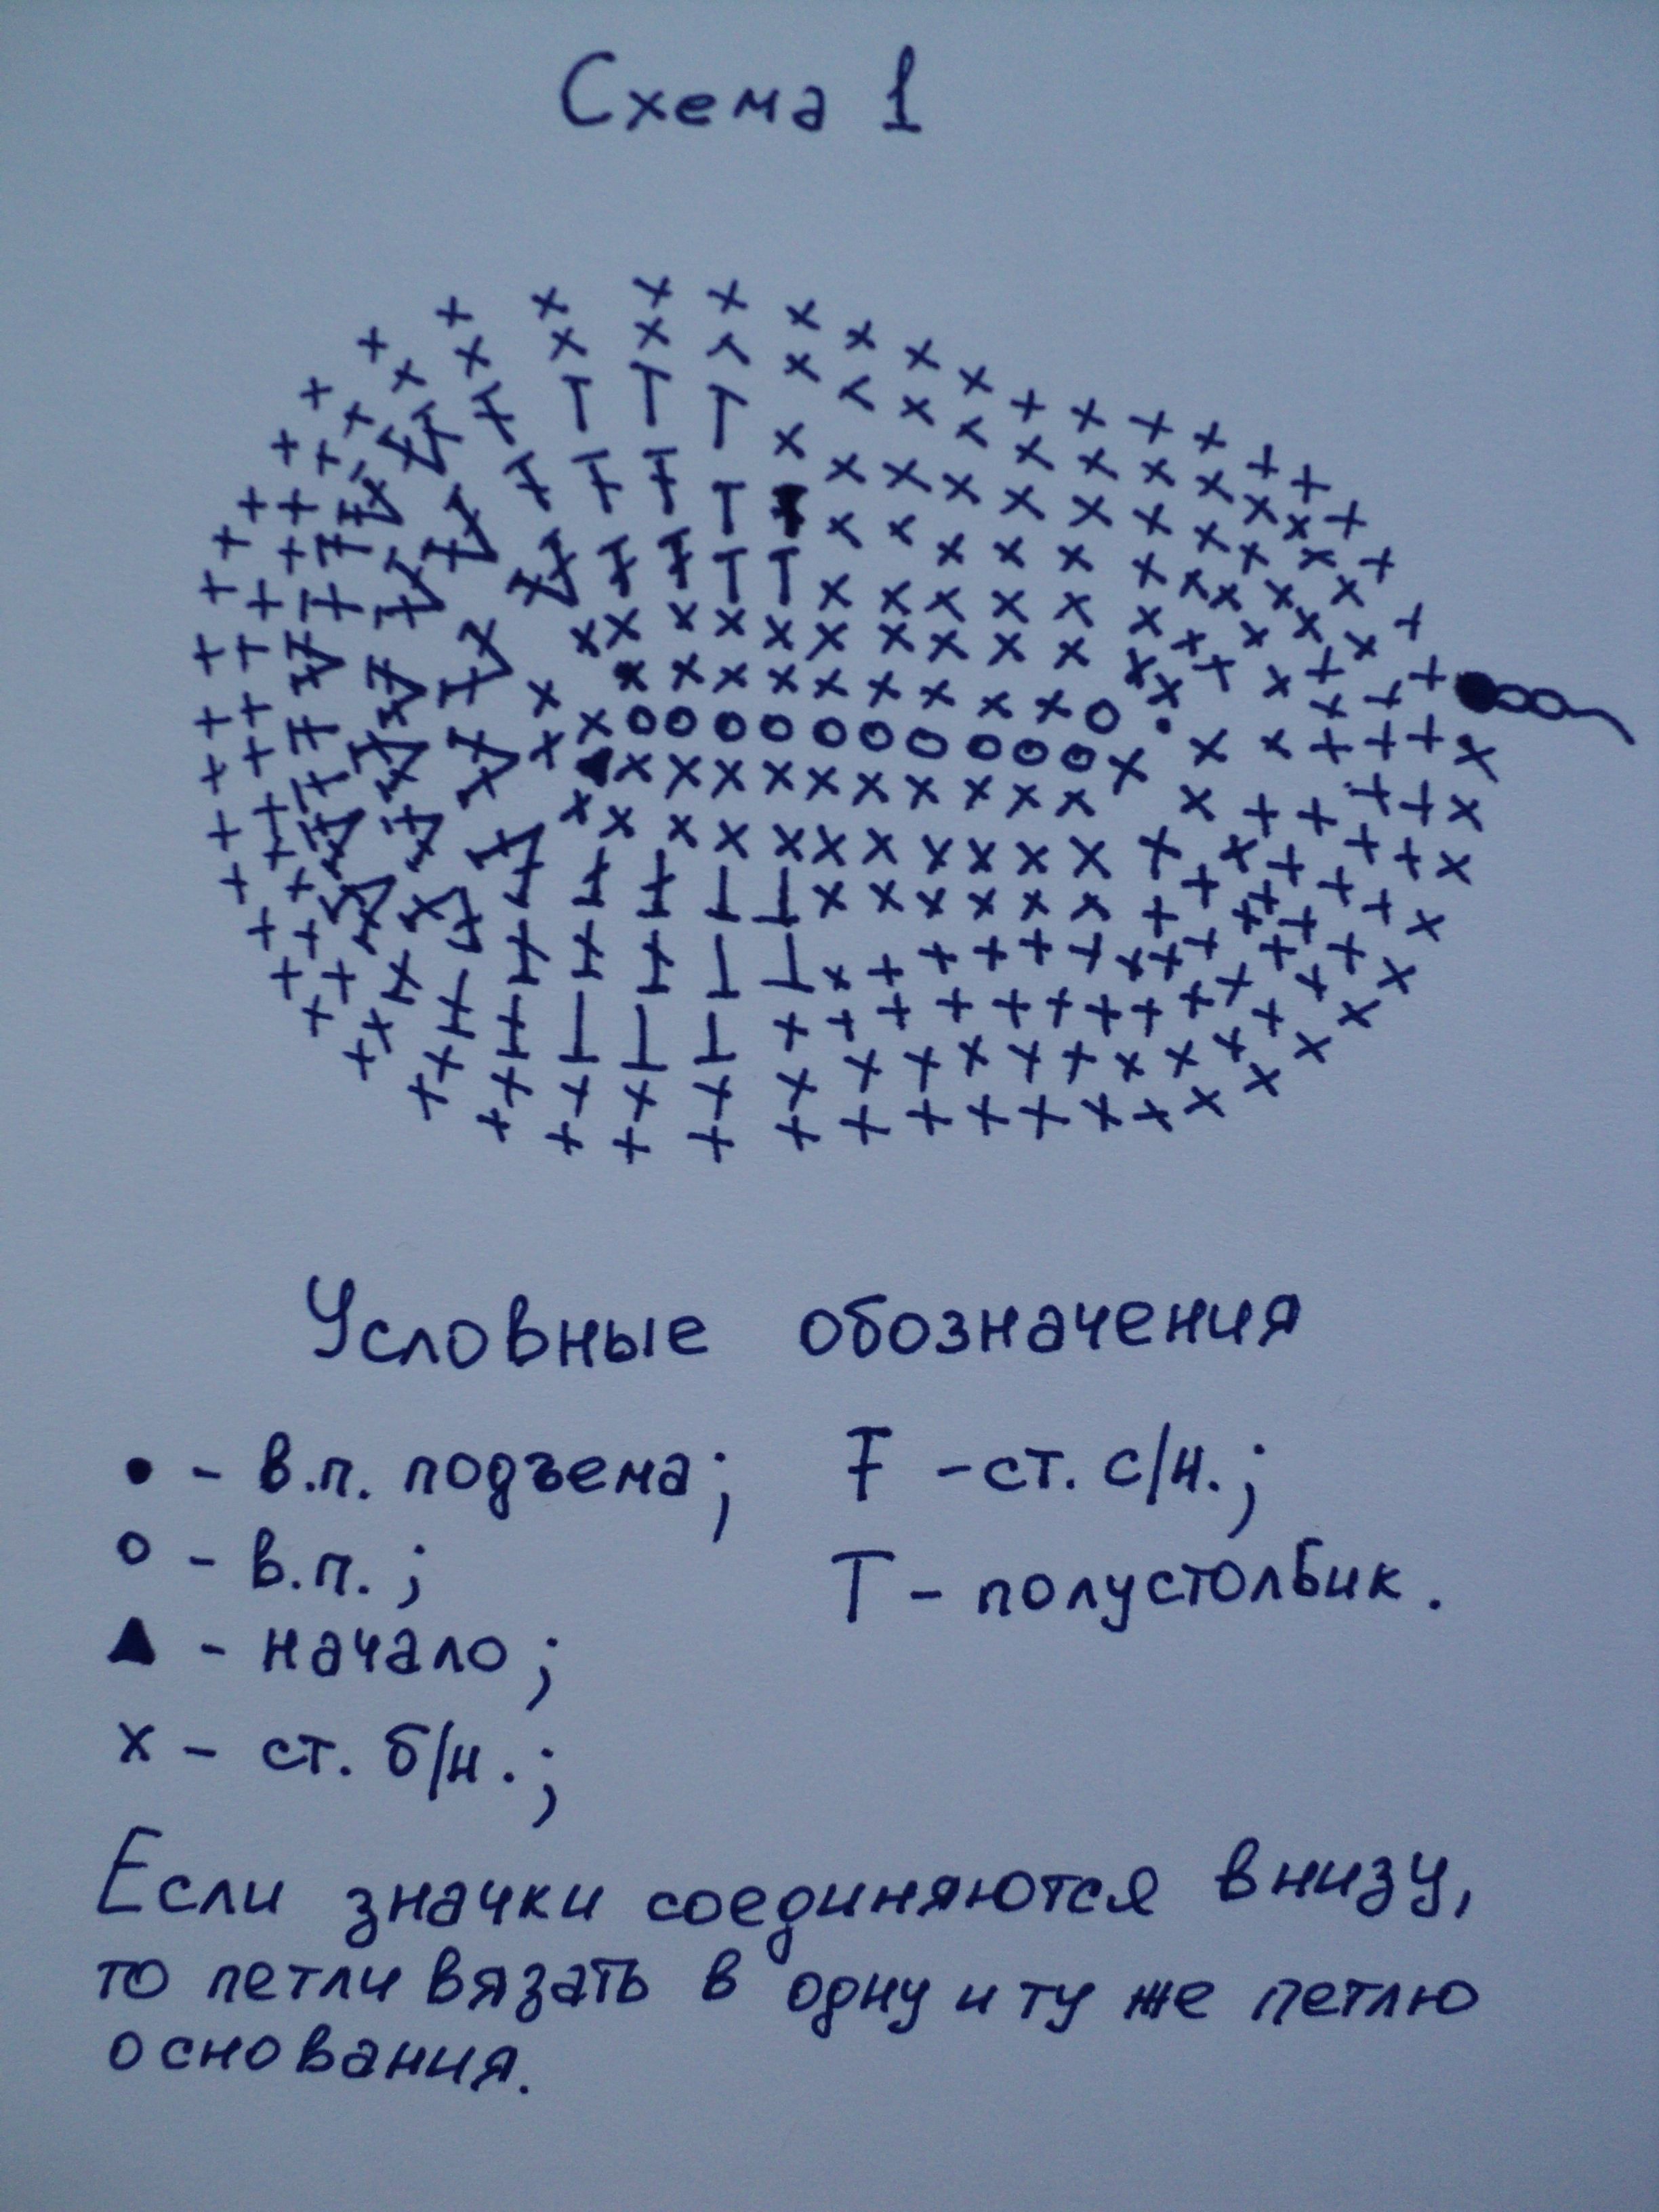 Схема 1
Условные обозначения
● - в.п. подъема; Ŧ - ст. с/н.;
о - в.п.; Т - полустолбик.
▲ - начало;
х - ст. б/н.;
Если значки соединяются внизу,
то петли вязать в одну и ту же петлю
основания.